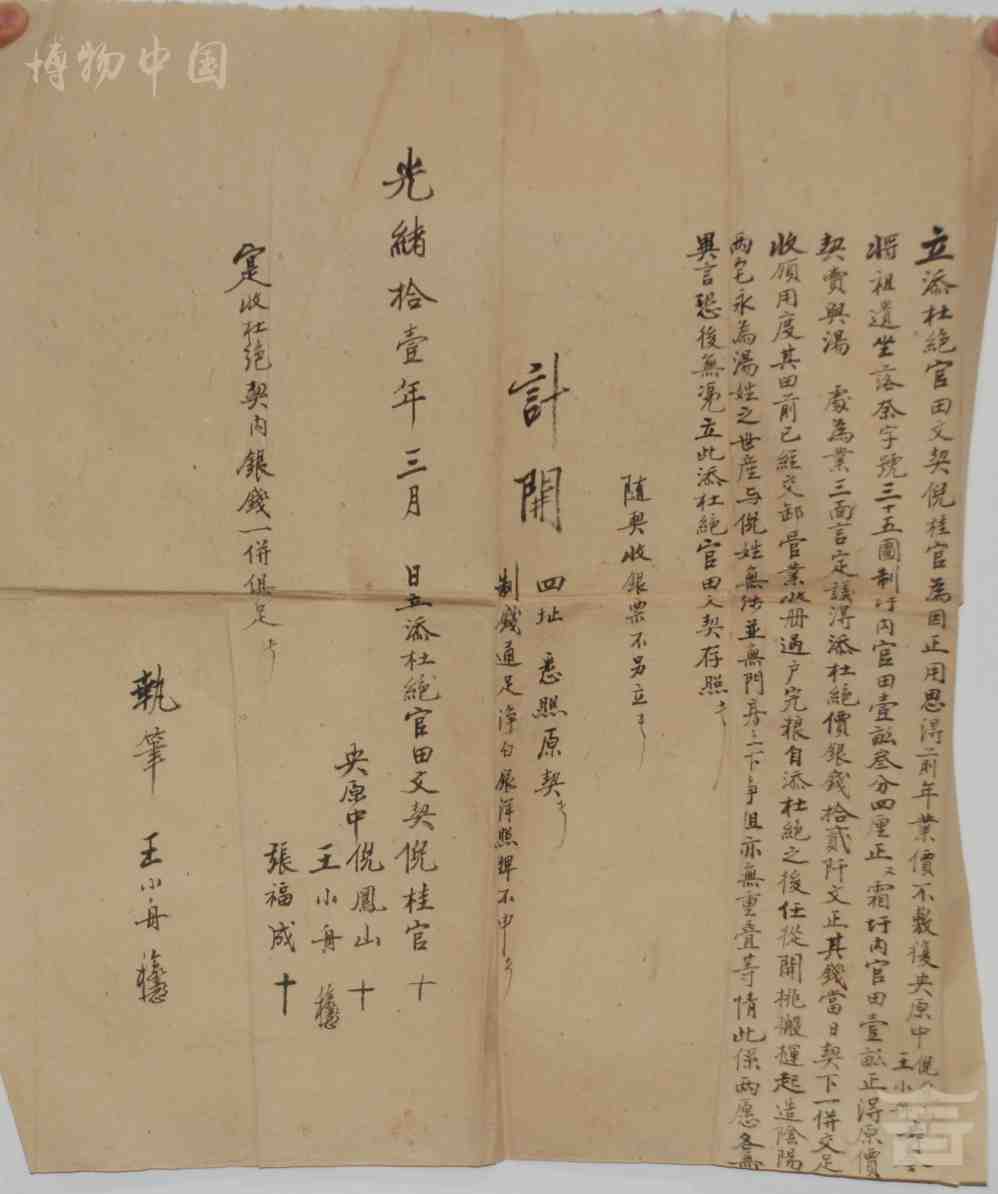 博物中国
立添杜絕官田文契倪桂官為因正用思得前年業價不敷復央原中倪
王小舟
將祖遺坐落奈字號三十五圖制圩內官田壹畝叁分四厘正又霜圩內官田壹畝正得原價
契賣與湯 處為業三面言定議得添杜絕價銀錢拾貳阡文正其錢當日契下一併交足
收領用度其田前已經交卸管業收冊過户完粮自添杜絕之後任從開挑搬運起造陰陽
兩宅永為湯姓之世産与倪姓無涉並無門房上下爭阻亦無重叠等情此係兩愿各無
異言恐後無凴立此添杜絕官田文契存照
随契收銀票不另立
計開 四址悉照原契
制錢通足淨白銀洋照埠不申
光緒拾壹年三月 日立添杜絕官田文契倪桂官十
央原中 倪鳳山十
王小舟
張福成十
寔收杜絕契內銀錢一併俱足
執筆 王小舟